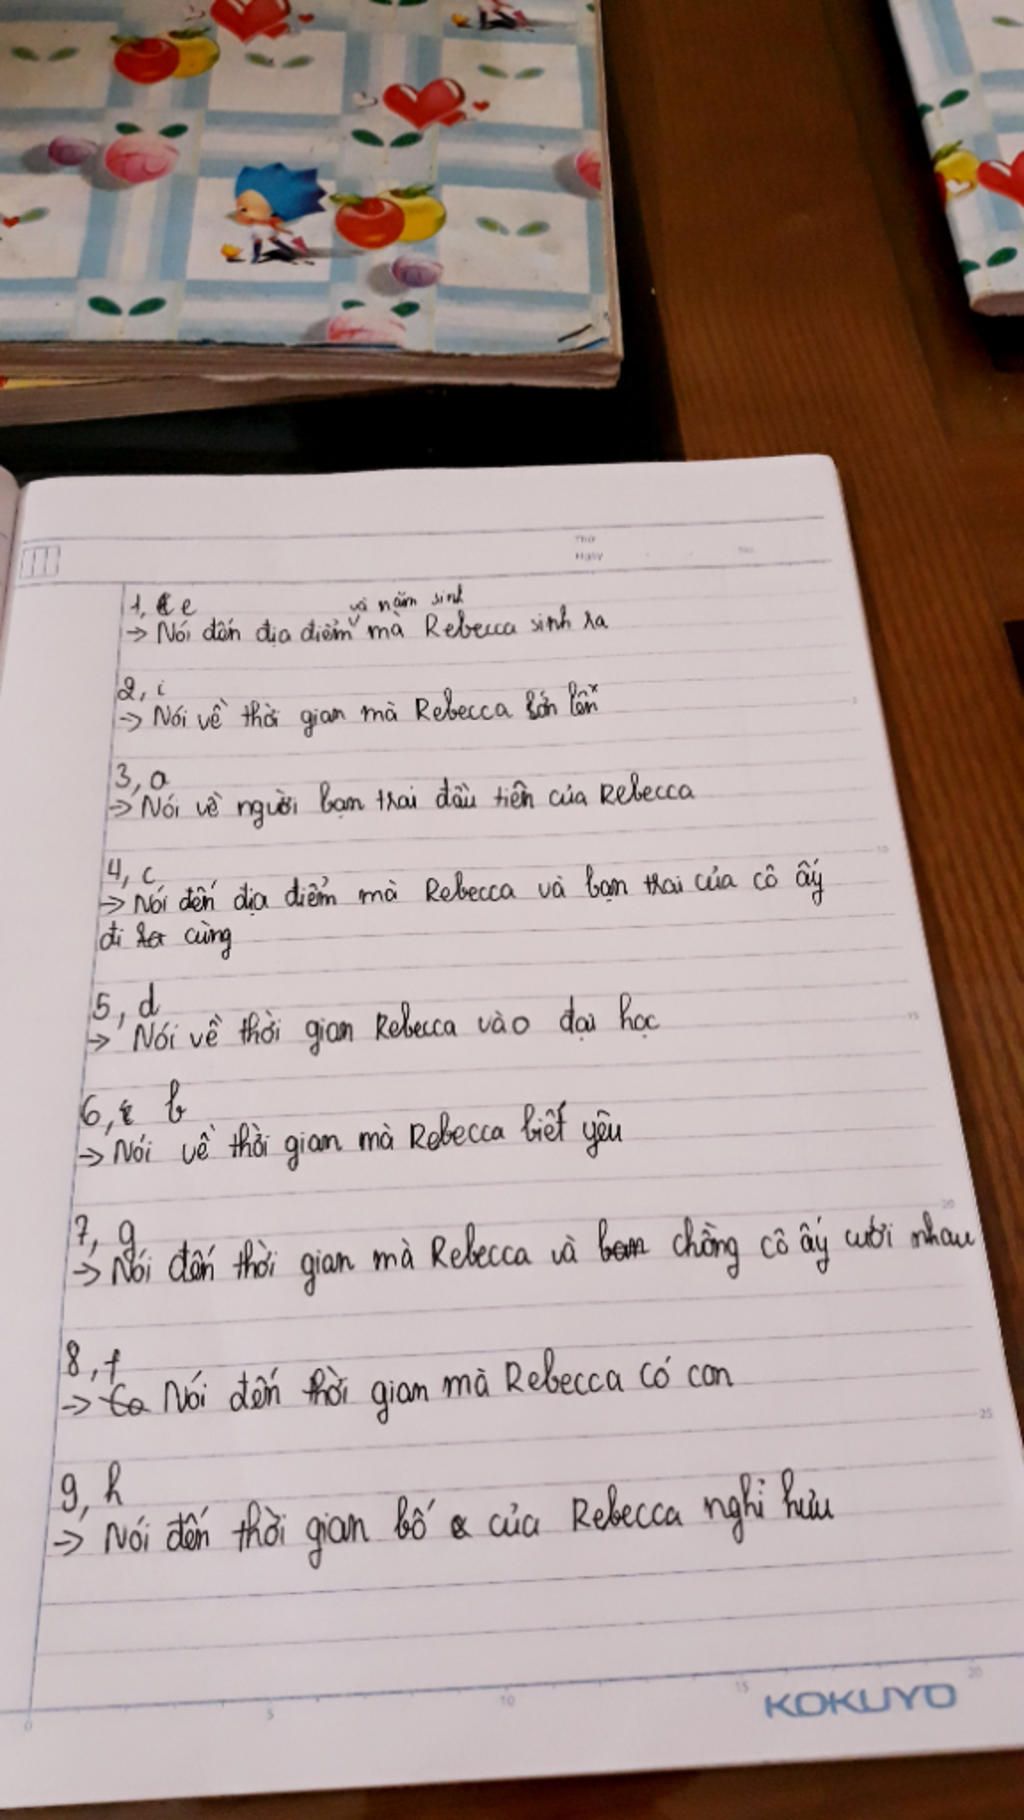 Thứ
Ngày No.
1, e
và năm sinh
→ Nói đến địa điểm mà Rebecca sinh ra
2, i
→ Nói về thời gian mà Rebecca lớn lên
5
3, a
→ Nói về người bạn trai đầu tiên của Rebecca
4, c
10
→ Nói đến địa điểm mà Rebecca và bạn trai của cô ấy
đi cùng
5, d
→ Nói về thời gian Rebecca vào đại học
15
6, b
→ Nói về thời gian mà Rebecca biết yêu
20
7, g
→ Nói đến thời gian mà Rebecca và chồng cô ấy cưới nhau
8, f
→ Nói đến thời gian mà Rebecca có con
25
9, h
→ Nói đến thời gian bố của Rebecca nghỉ hưu
0 5 10 15 20
KOKUYO